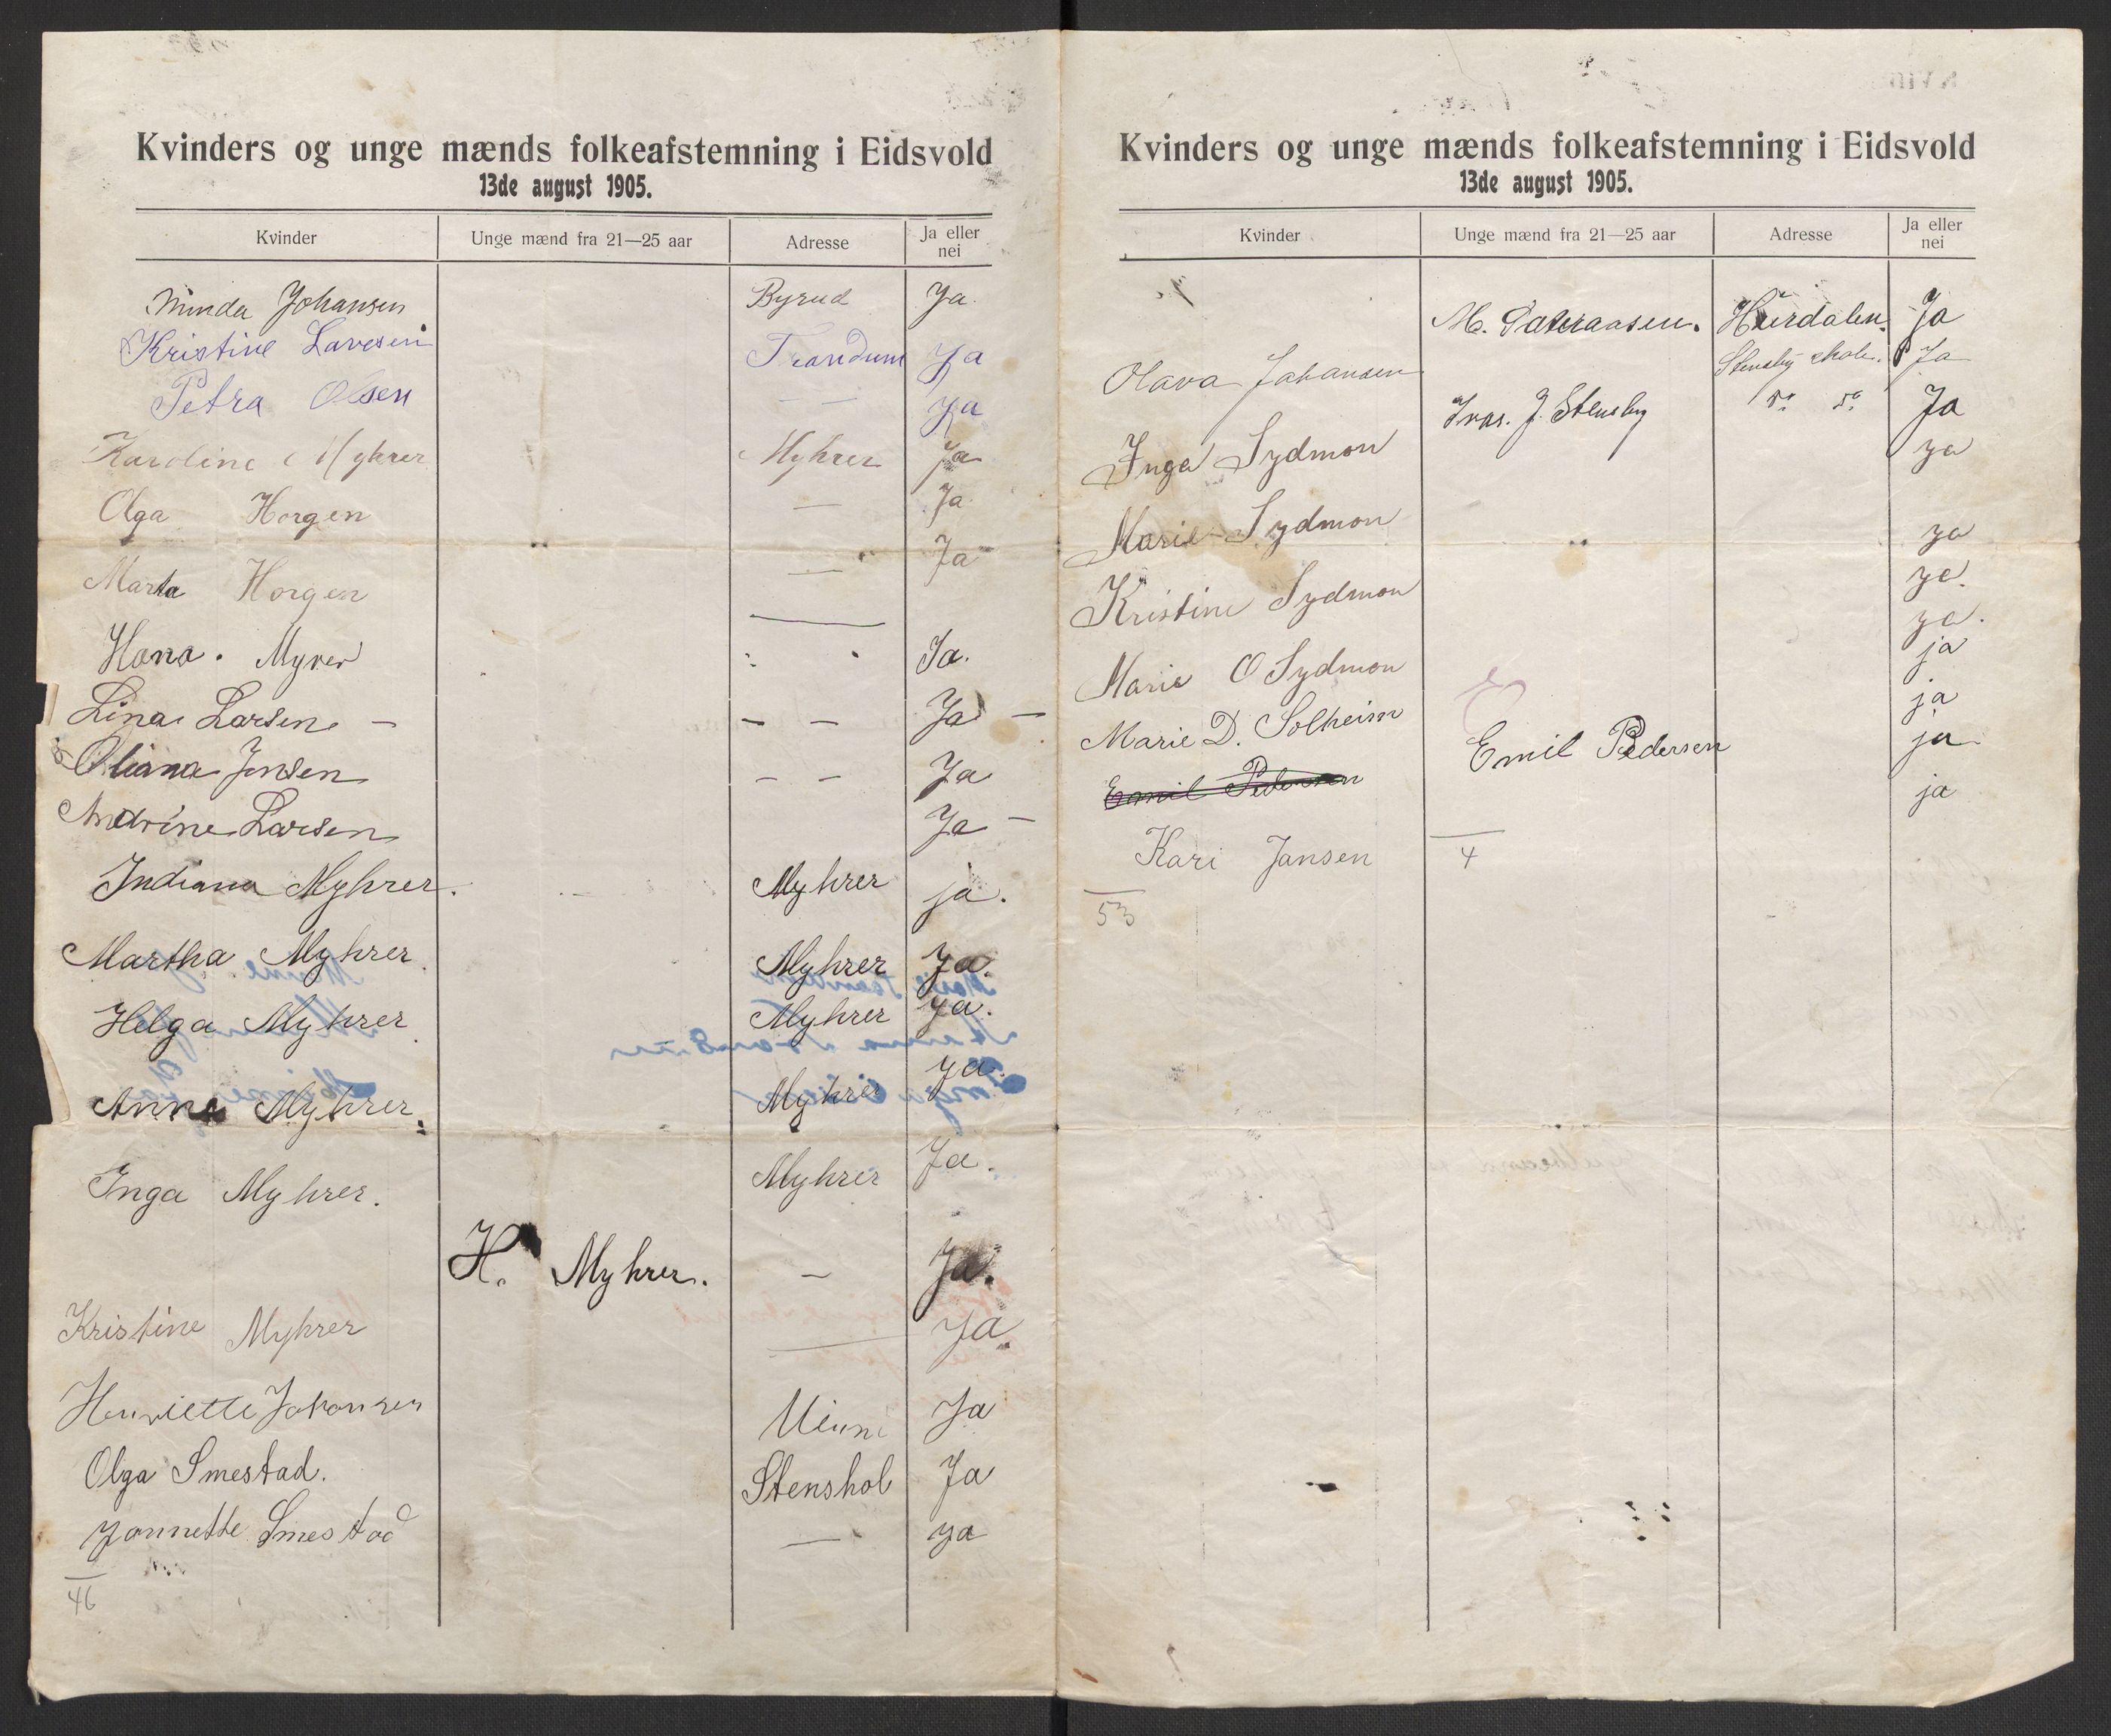 Kvinders og unge mænds folkeafstemning i Eidsvold
13de august 1905.
Kvinder Unge mænd fra 21—25 aar Adresse Ja eller nei
Minda Johansen Byrud Ja
Kristine Laresen Trandum Ja
Petra Olsen — Ja
Karoline Myhrer Myhrer Ja
Olga Horgen — Ja
Marta Horgen — Ja
Hana. Myrer Ja.
Lina Larsen — — — Ja —
Oliana Jensen — — Ja
Andrine Larsen Ja —
Indiana Myhrer. Myhrer ja.
Martha Myhrer. Myhrer Ja.
Helga Myhrer. Myhrer ya.
Anna Myhrer. Myhrer ya.
Inga Myhrer. Myhrer Ja.
H. Myhrer. — Ja.
Kristine Myhrer — Ja.
Henriette Johansen Minne Ja
Olga Smestad. Stenshol Ja
Jannette Smestad — ya
46
Kvinders og unge mænds folkeafstemning i Eidsvold
13de august 1905.
Kvinder Unge mænd fra 21—25 aar Adresse Ja eller nei
M. Hurdalen. Ja
Olava Johansen Stensby skole. Ja
J. Stensby Do Do Ja
Inga Sydmon ya
Marie Sydmon ya
Kristine Sydmon ya.
Marie O Sydmon ya.
Marie D. Solheim ja
ja
Emil Pedersen Emil Pedersen ja
Kari Jansen ja
4
53